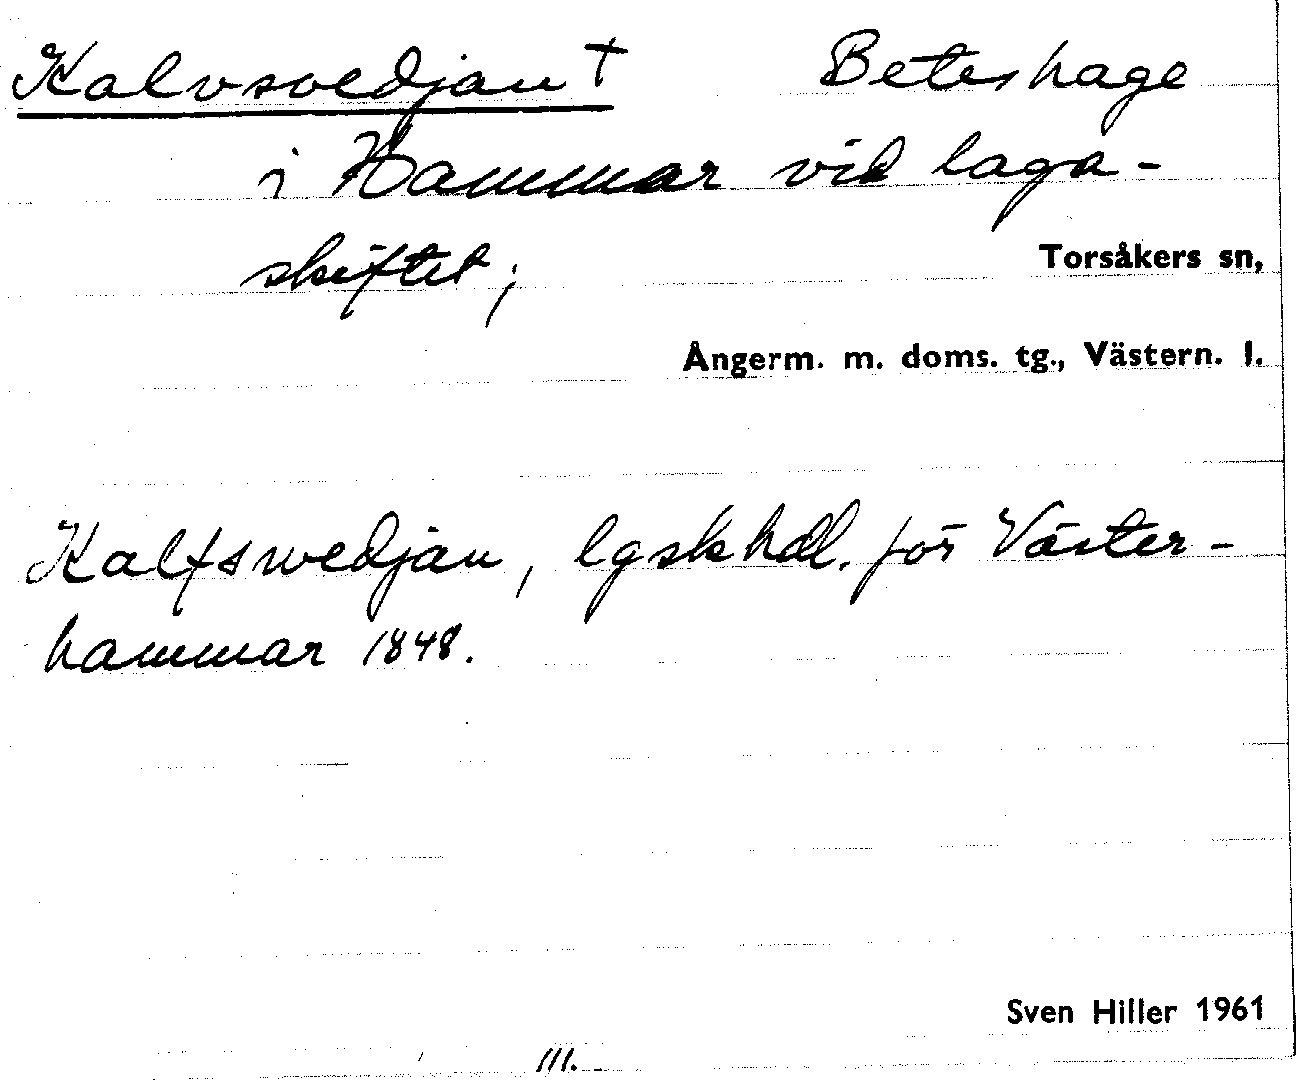 Kalvsvedjan † Beteshage
i Hammar vid laga-
skiftet;
Torsåkers sn,
Ångerm. m. doms. tg., Västern. l.
Kalfswedjan, lgskhdl. för Väster-
hammar 1848.
Sven Hiller 1961
III.